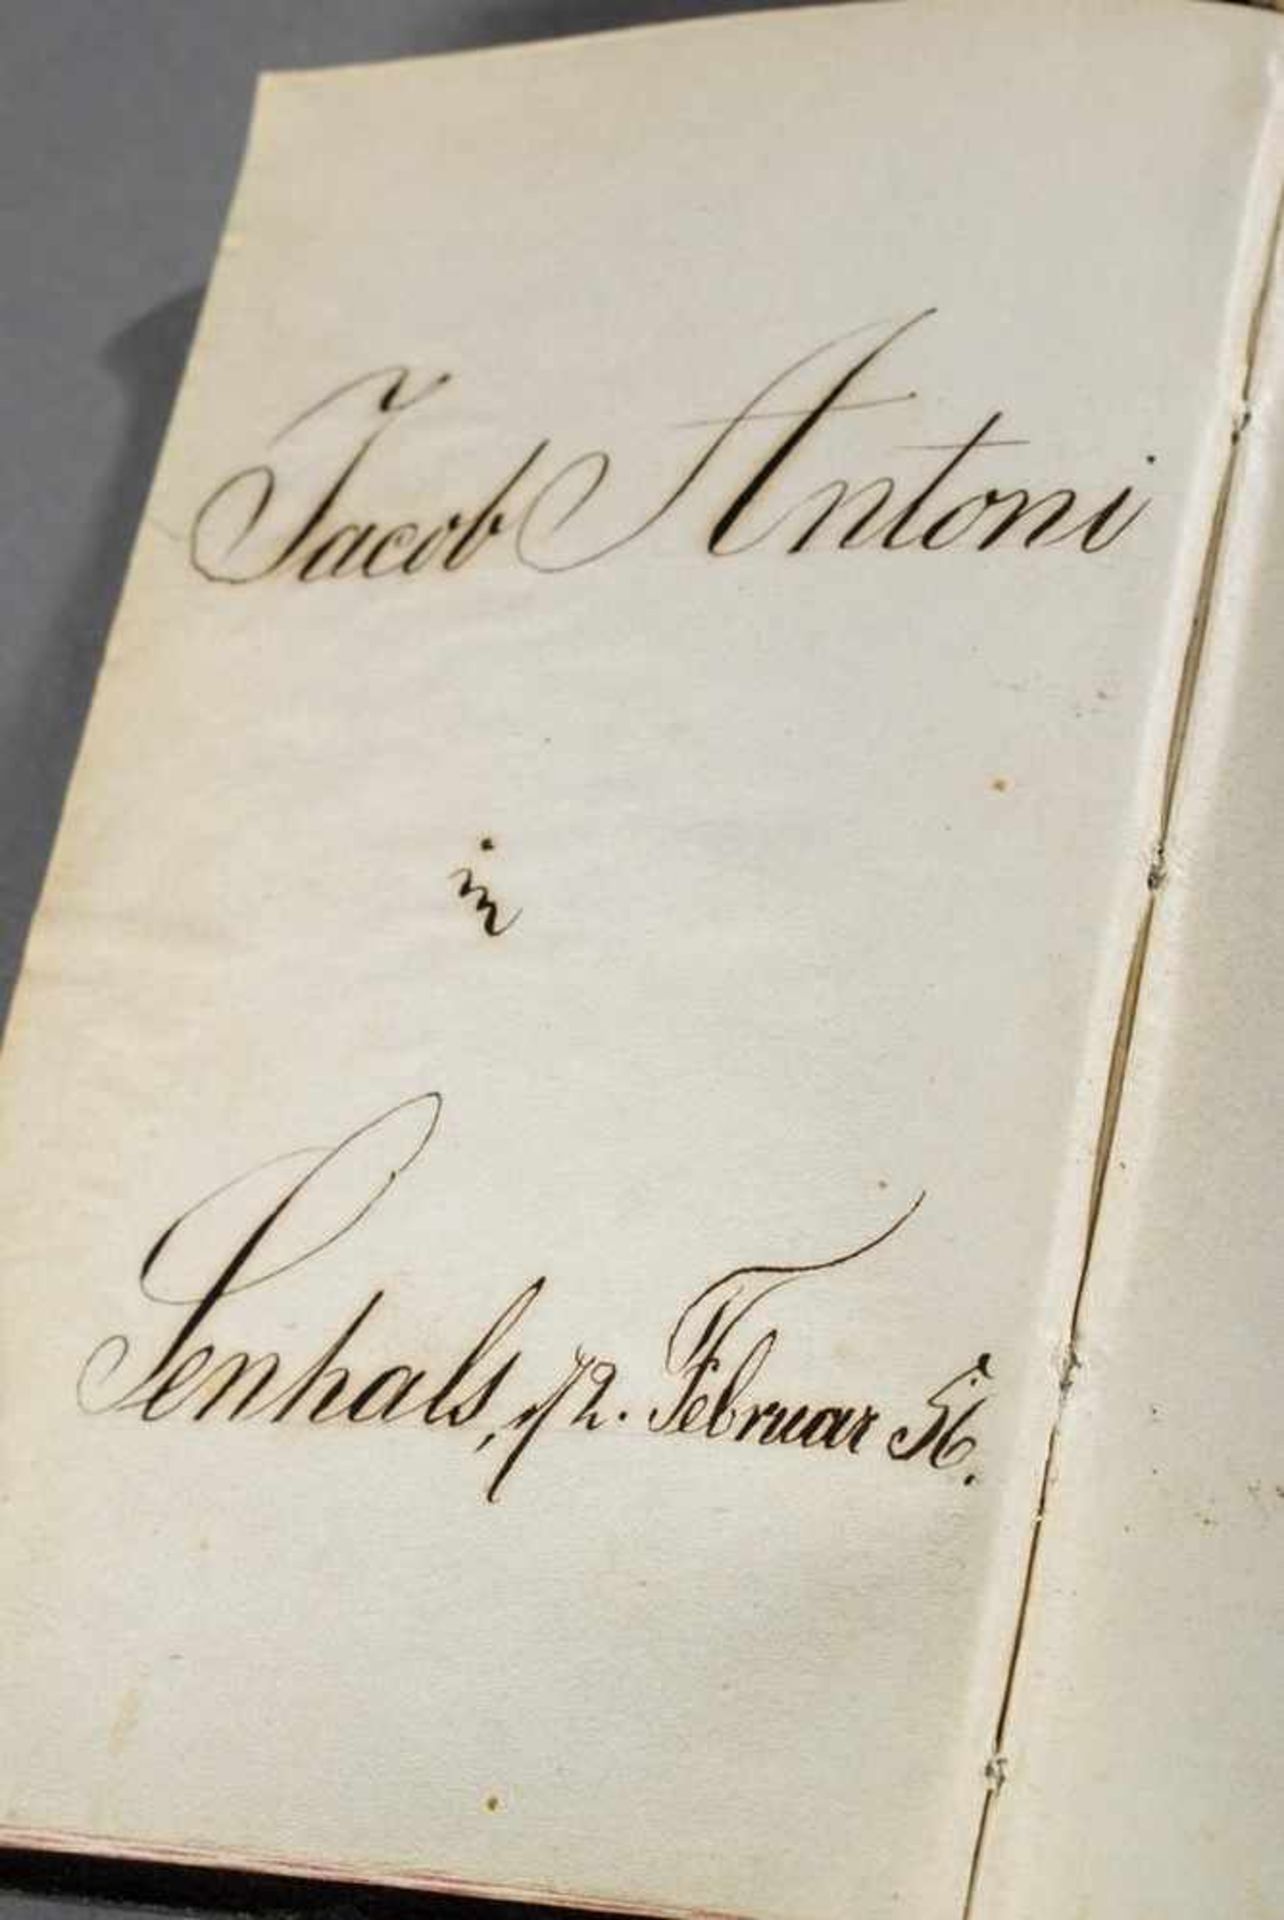 Jacob Antoni
in
Senhals, 12. Februar 56.